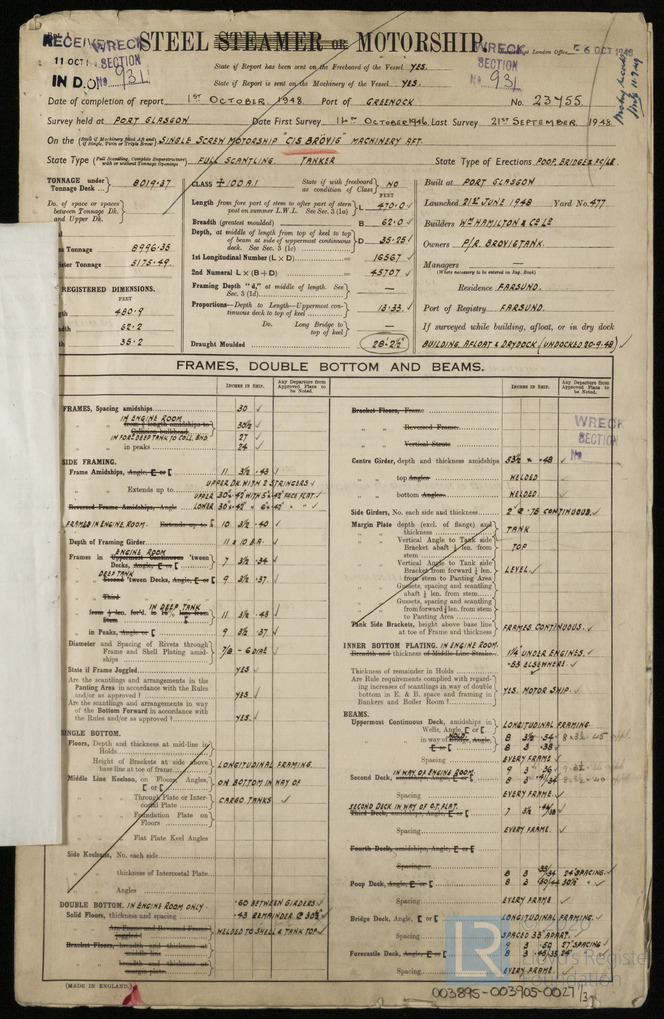 RECEIVED
11 OCT 19
IN D.O.
WRECK
SECTION
No 931
STEEL STEAMER OR MOTORSHIP.
London Office 6 OCT 1948
WRECK
SECTION
No 931
State if Report has been sent on the Freeboard of the Vessel YES.
State if Report is sent on the Machinery of the Vessel YES.
Date of completion of report 1ST OCTOBER. 1948. Port of GREENOCK No. 23755
Survey held at PORT GLASGOW Date First Survey OCTOBER 1946. Last Survey 21ST SEPTEMBER 1948
On the (State if Machinery fitted Aft and if Single, Twin or Triple Screw) SINGLE SCREW MOTORSHIP "CIS BRÖVIG" MACHINERY AFT.
State Type (Full Scantling, Complete Superstructure with or without Tonnage Openings) FULL SCANTLING. TANKER State Type of Erections POOP, BRIDGE & FC/LE.
TONNAGE under Tonnage Deck 8019.37
Do. of space or spaces between Tonnage Dk. and Upper Dk.
Tonnage 8996.35
Tonnage 5175.49
REGISTERED DIMENSIONS.
FEET
480.9
62.2
35.2
CLASS +100 A.1 State if with freeboard as condition of Class NO
FEET
Length from fore part of stem to after part of stern post on summer L.W.L. See Sec. 3 (1a) L 470.0
Breadth (greatest moulded) B 62.0
Depth, at middle of length from top of keel to top of beam at side of uppermost continuous deck. See Sec. 3 (1c) D 35.25
1st Longitudinal Number (L x D) 16567
2nd Numeral L x (B+D) 45707
Framing Depth "d," at middle of length. See Sec. 3 (1d) —
Proportions—Depth to Length—Uppermost continuous deck to top of keel 13.33
Do. Long Bridge to top of keel —
Draught Moulded 28'-2½"
Built at PORT GLASGOW
Launched 21ST JUNE 1948 Yard No. 477
Builders WM HAMILTON & CO LD
Owners P/R. BROVIGTANK.
Managers —
(Where necessary to be entered in Reg. Book)
Residence FARSUND.
Port of Registry FARSUND.
If surveyed while building, afloat, or in dry dock
BUILDING AFLOAT & DRYDOCK (UNDOCKED 20-9-48)
FRAMES, DOUBLE BOTTOM AND BEAMS.
INCHES IN SHIP.
Any Departure from Approved Plans to be Noted.
FRAMES, Spacing amidships 30
IN ENGINE ROOM
from ⅗ length amidships to Collision bulkhead 30½
IN FORD DEEP TANK TO COLL. BHD. 27
in peaks 24
SIDE FRAMING.
Frame Amidships, Angle, E or [ 11 3½ .43
Extends up to UPPER DK. WITH 2 STRINGERS
UPPER
Reversed Frame Amidships, Angle LOWER
FRAMES IN ENGINE ROOM. Extends up to [ 10 3½ .40
Depth of Framing Girder 11 x 10 B.A.
ENGINE ROOM
Frames in Uppermost Continuous 'tween Decks, Angle, E or [ 7 3½ .34
DEEP TANK
Second 'tween Decks, Angle, E or [ 9 3½ .37
Third
IN DEEP TANK
11 3½ .43
in Peaks, Angle or [ 9 3½ .37
Diameter and Spacing of Rivets through Frame and Shell Plating amidships 7/8 - 6 DIAS
State if Frame Joggled YES
Are the scantlings and arrangements in the Panting Area in accordance with the Rules and/or as approved? YES
Are the scantlings and arrangements in way of the Bottom Forward in accordance with the Rules and/or as approved? YES.
SINGLE BOTTOM.
Floors, Depth and thickness at mid-line in Holds
Height of Brackets at side above base line at toe of frame LONGITUDINAL FRAMING
Middle Line Keelson, on Floors, Angles, E or [ ON BOTTOM IN WAY OF
Through Plate or Intercostal Plate CARGO TANKS
Foundation Plate on Floors
Flat Plate Keel Angles
Side Keelsons, No. each side
thickness of Intercostal Plate
Angles
DOUBLE BOTTOM. IN ENGINE ROOM ONLY .60 BETWEEN GIRDERS
Solid Floors, thickness and spacing .43 REMAINDER @ 30½
WELDED TO SHELL & TANK TOP
Bracket Floors, breadth and thickness at middle line
breadth and thickness at margin plate
(MADE IN ENGLAND.)
INCHES IN SHIP.
Any Departure from Approved Plans to be Noted.
Bracket Floors, Frame
Reversed Frame
Vertical Struts
WRECK
SECTION
No
Centre Girder, depth and thickness amidships 53½ x .48
top Angles WELDED
bottom Angles WELDED
Side Girders, No. each side and thickness 2 @ .75 CONTINUOUS
Margin Plate depth (excl. of flange) and thickness TANK
Vertical Angle to Tank side Bracket abaft ¼ len. from stem TOP
Vertical Angle to Tank side Bracket from forward ¼ len. from stem to Panting Area LEVEL
Gussets, spacing and scantling abaft ¼ len. from stem
Gussets, spacing and scantling from forward ¼ len. from stem to Panting Area
Tank Side Brackets, height above base line at toe of Frame and thickness FRAMES CONTINUOUS.
INNER BOTTOM PLATING. IN ENGINE ROOM.
Breadth and thickness of Middle Line Strake 1¼ UNDER ENGINES.
Thickness of remainder in Holds .53 ELSEWHERE
Are Rule requirements complied with regarding increases of scantlings in way of double bottom in E. & B. space and framing in Bunkers and Boiler Room? YES. MOTOR SHIP.
BEAMS.
Uppermost Continuous Deck, amidships in Wells, Angle, E or [ LONGITUDINAL FRAMING
in way of HOLD 8 3½ .34
8 3 .38
Spacing EVERY FRAME
IN WAY OF ENGINE ROOM
Second Deck,
Spacing EVERY FRAME.
SECOND DECK IN WAY OF O.T. FLAT.
Third Deck, amidships, Angle, E or [ 7 3½
Spacing EVERY FRAME.
Fourth Deck, amidships, Angle, E or [
Spacing
Poop Deck, Angle, E or [ 8 3 24" SPACING
8 3 30½ "
Spacing EVERY FRAME
Bridge Deck, Angle, E or [ LONGITUDINAL FRAMING.
Spacing SPACED 33" APART.
Forecastle Deck, Angle, E or [ 9 3 .50 27" SPACING
Spacing EVERY FRAME
LR
© 2020
Lloyd's Register
Foundation
003895-003905-0027 1/3